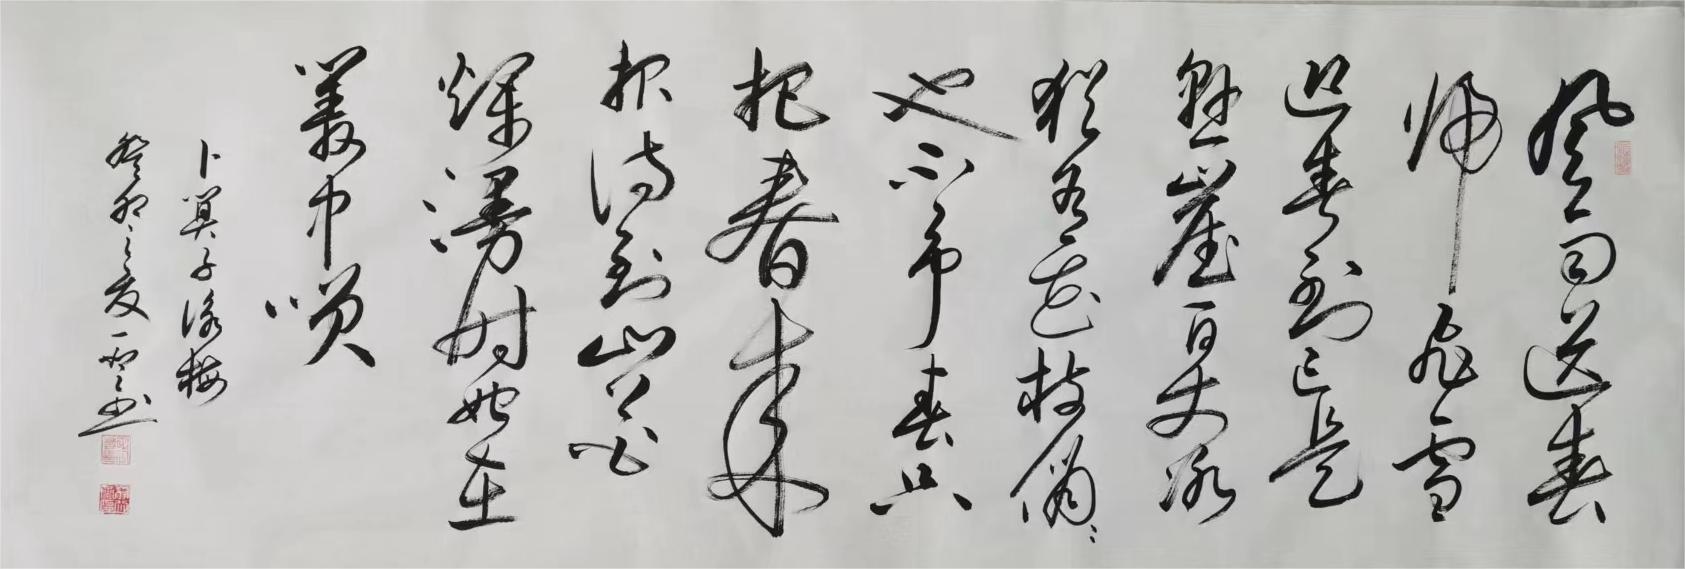 风雨送春
归飞雪
迎春到已是
悬崖百丈冰
犹有花枝俏
也不争春只
把春来
报待到山花
烂漫时她在
丛中笑
卜算子咏梅
癸卯之夏一书